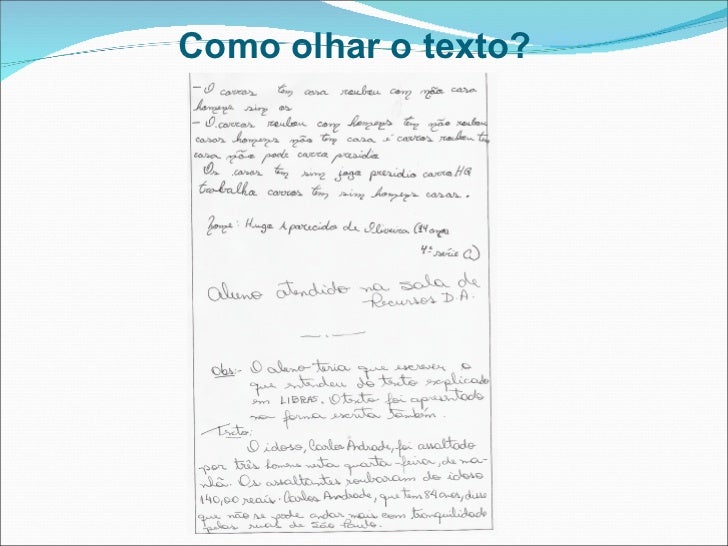 Como olhar o texto?
- O carros tem casa roubou com não casa
homens sim os
- O.carros roubou com homens tem não roubou
casas homens não tem casa é carros roubou te
casa não pode carra presidio
Os casas tem sim joga presidio carro HQ
trabalha carros tem sim homens casas.
Nome: Hugo Aparecido de Oliveira (14 anos
4ª serie C)
Aluno atendido na sala de
Recursos D.A.
Obs:- O aluno teria que escrever o
que entendeu do texto explicado
em LIBRAS. O texto foi apresentado
na forma escrita também.
Texto:
O idoso, Carlos Andrade, foi assaltado
por três homens nesta quarta-feira, de ma-
nhã. Os assaltantes roubaram do idoso
140,00 reais. Carlos Andrade, que tem 84 anos, disse
que não se pode andar mais com tranquilidade
pelas ruas de São Paulo.